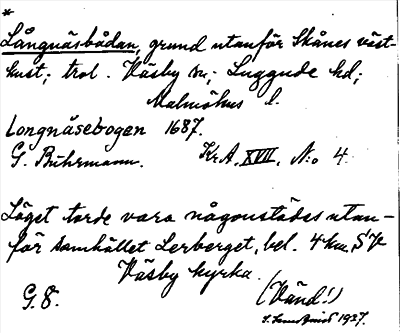 *
Långnäsbådan, grund utanför Skånes väst-
kust; trol. Väsby sn; Luggude hd;
Malmöhus l.
Longnåsebogen 1687.
G. Buhrmann. KrA. XVII, N:o 4.
Läget torde vara någonstädes utan-
för samhället Lerberget, bel. 4 km. SV
Väsby kyrka.
G.8. (Vänd!)
1937.